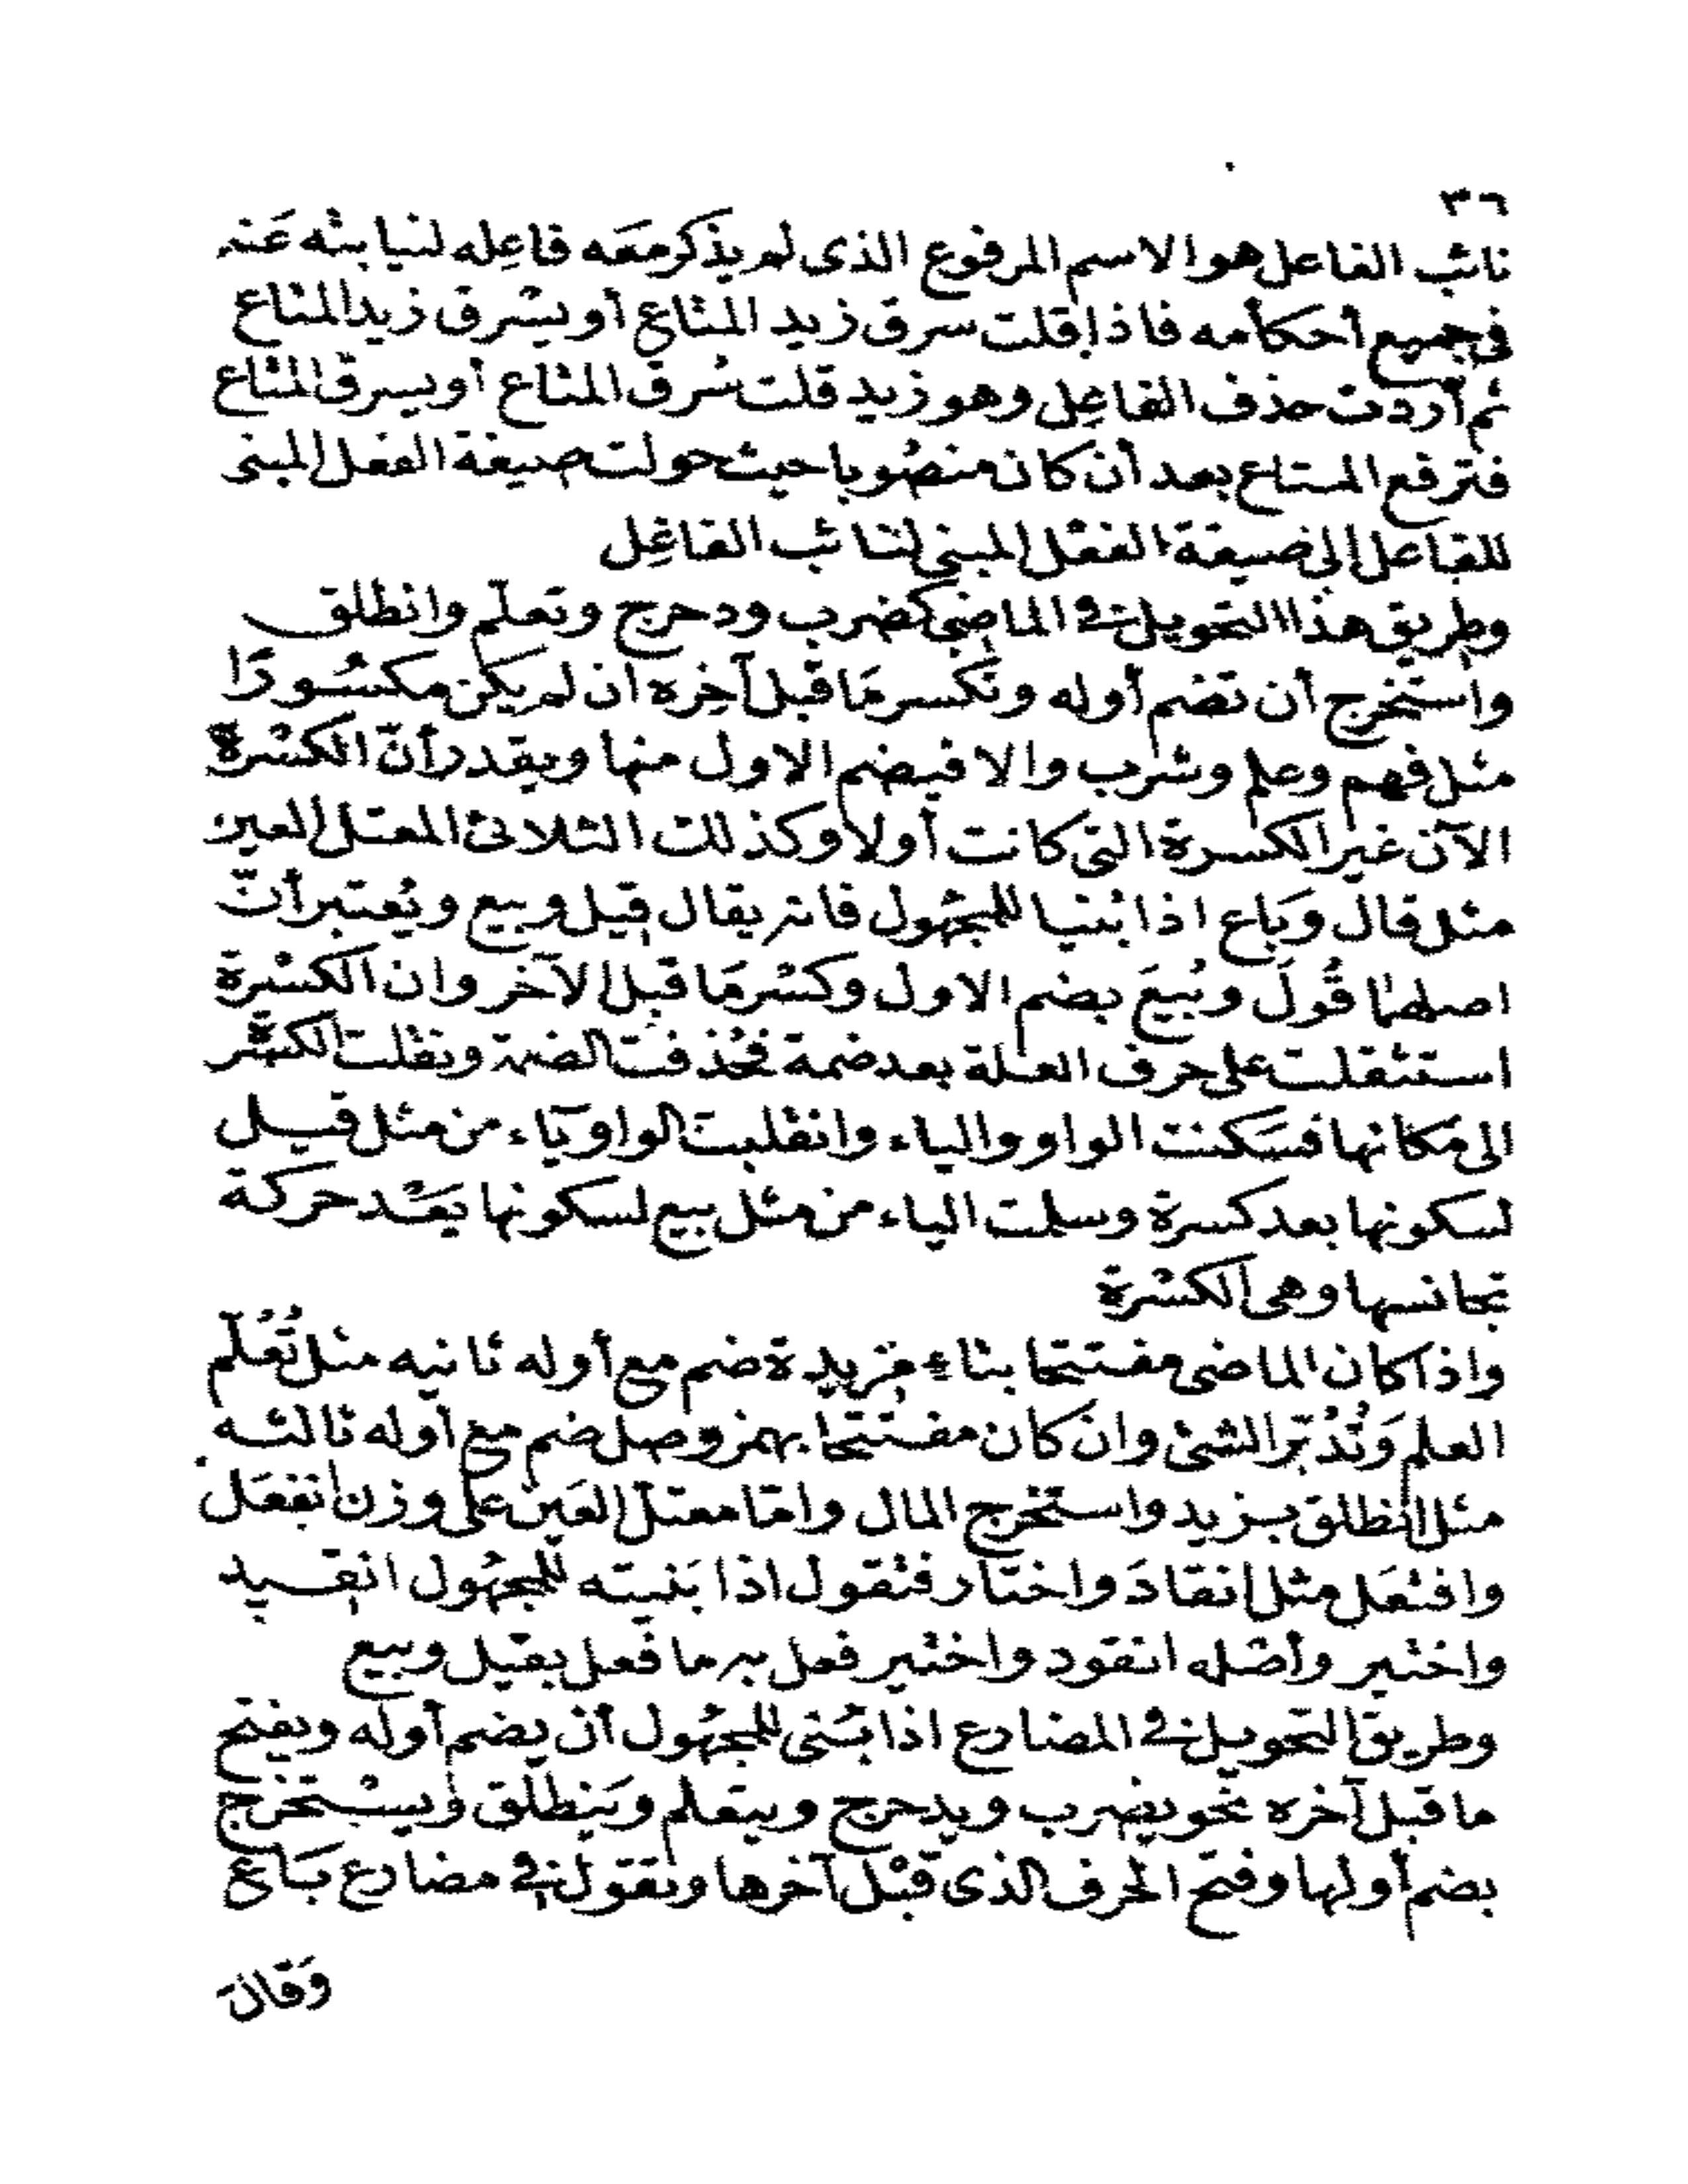 ٣٦
نائب الفاعل هو الاسم المرفوع الذى لم يذكر معَه فاعِله لنيابته عَنه
فى جميع أحكامه فاذا قلت سرق زيد المتاع أو يسْرق زيد المتاع
ثم أردت حذف الفاعِل وهو زيد قلت سُرق المتاع أو يسرق المتاع
فترفع المتاع بعد أن كان منصُوبا حيث حولت صيغة الفعل المبنى
للفاعل إلى صيغة الفعْل المبنى لنائب الفاعِل
وطريق هذا التحويل فى الماضى كضرب ودحرج وتعلّم وانطلق
واستخرج أن تضم أوله وتكسر مَا قبل آخِره ان لم يكن مكسُورًا
مثل فهم وعلم وشرب والا فيضم الاول منها ويقدر أنّ الكسْرة
الآن غير الكسرة التى كانت أولا وكذلك الثلاثى المعتل العين
مثل قال وَباع اذا بُنيا للمجهُول فانه يقال قِيل وبيع ويُعتبر أنّ
اصلهما قُولَ وبُيعَ بضم الاول وكسْر مَا قبل الآخر وان الكسْرة
استثقلت على حرف العلة بعد ضمة فحُذفت الضمة ونقلت الكسْرة
الى مَكانها فسَكنت الواو والياء وانقلبت الواو يَاء من مثل قيل
لسكونها بعد كسرة وسلمت الياء من مثل بيع لسكونها بَعْد حركة
تجانسها وهى الكسْرة
واذا كان الماضى مفتتحا بتاء مَزيدة ضم مع أوله ثانيه مثل تُعُلّم
العلم وَتُدُبّر الشئ وان كان مفتتحا بهمز وصل ضم مع أوله ثالثه
مثل انطلق بزيد واستخرج المال وامّا معتل العَين على وزن انفعَل
وافتعَل مثل انقادَ واختار فتقول اذا بَنيته للمجهُول انقِيد
واختير وأصْله انقود واختير فعل به ما فعل بقيل وبيع
وطريق التحويل فى المضارع اذا بُنى للمجهُول أن يضم أوله ويفتح
ما قبل آخره نحو يضرب ويدحرج ويتعلم وَيَنطلق ويسْتخرج
بضم أولها وفتح الحرف الذى قبْل آخرها وتقول فى مضارع بَاع
وَقالَ